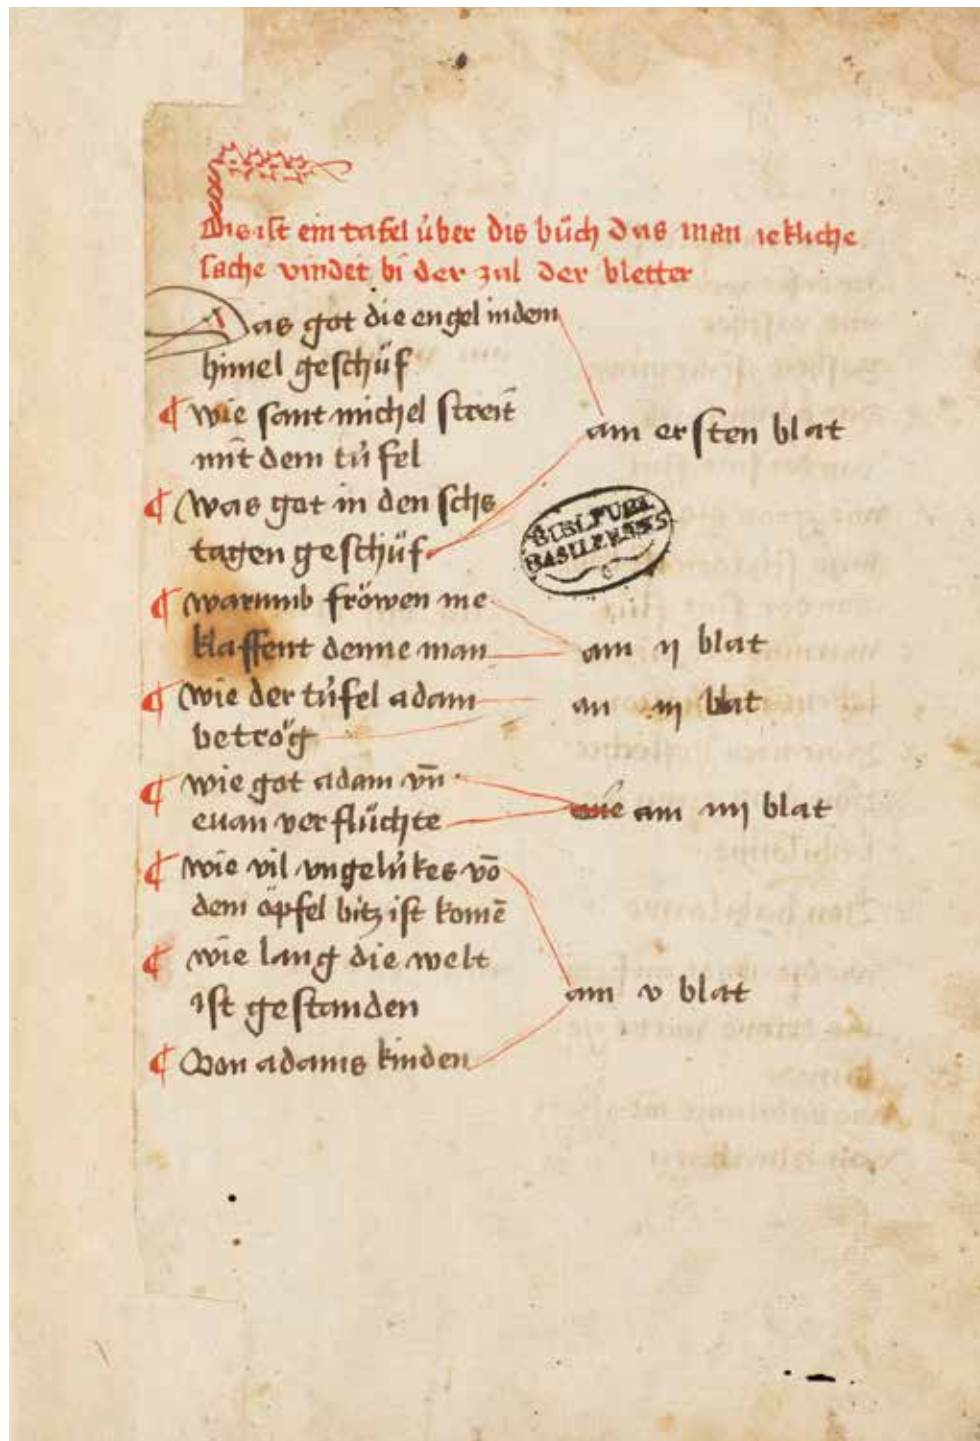 Dis ist ein tafel über dis bůch das man iekliche
sache vindet bi der zal der bletter
Das got die engel in dem
himel geschůf
¶ wie sant michel streit
mit dem tüfel
am ersten blat
¶ Was got in den sehs
tagen geschůf
BIBL PUBL
BASILEENSIS
¶ warumb fröwen me
klaffent denne man
am ij blat
¶ wie der tüfel adam
betrög
an iij blat
¶ wie got adam vn̄
euan verflůchte
am iiij blat
¶ wie vil vngelükes vō
dem öpfel bitz ist komē
¶ wie lang die welt
ist gestanden
am v blat
¶ Von adams kinden